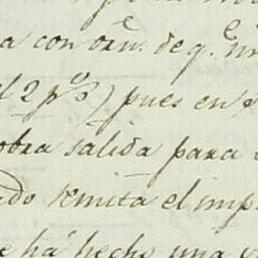 a con orn.e de q.e
el 2 p.o 3) pues en
obra salida para
remita el imp
e há hecho una